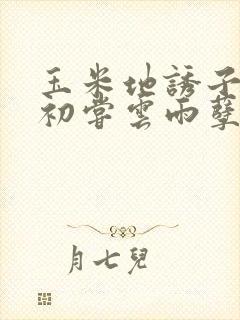 玉米地誘子
初嘗雲雨孽
月七兒